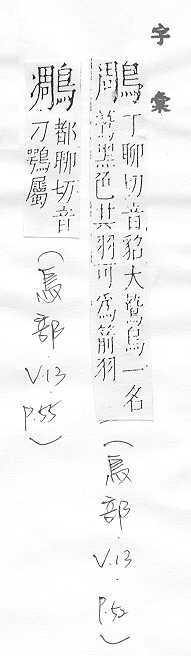 字彙
鵰丁聊切音貂大鷙鳥一名
黑色其羽可為箭羽
（鳥部．V.13．P.52）
都聊切音
刁鶚屬
（鳥部．V.13．P.55）